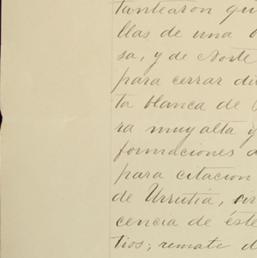 tantearon qu
llas de una
sa, y de Norte
para cerrar di
ta blanca de
ra muy alta y
formaciones
para citacion
de Urrutia,
cencia de éste
tios; remate d